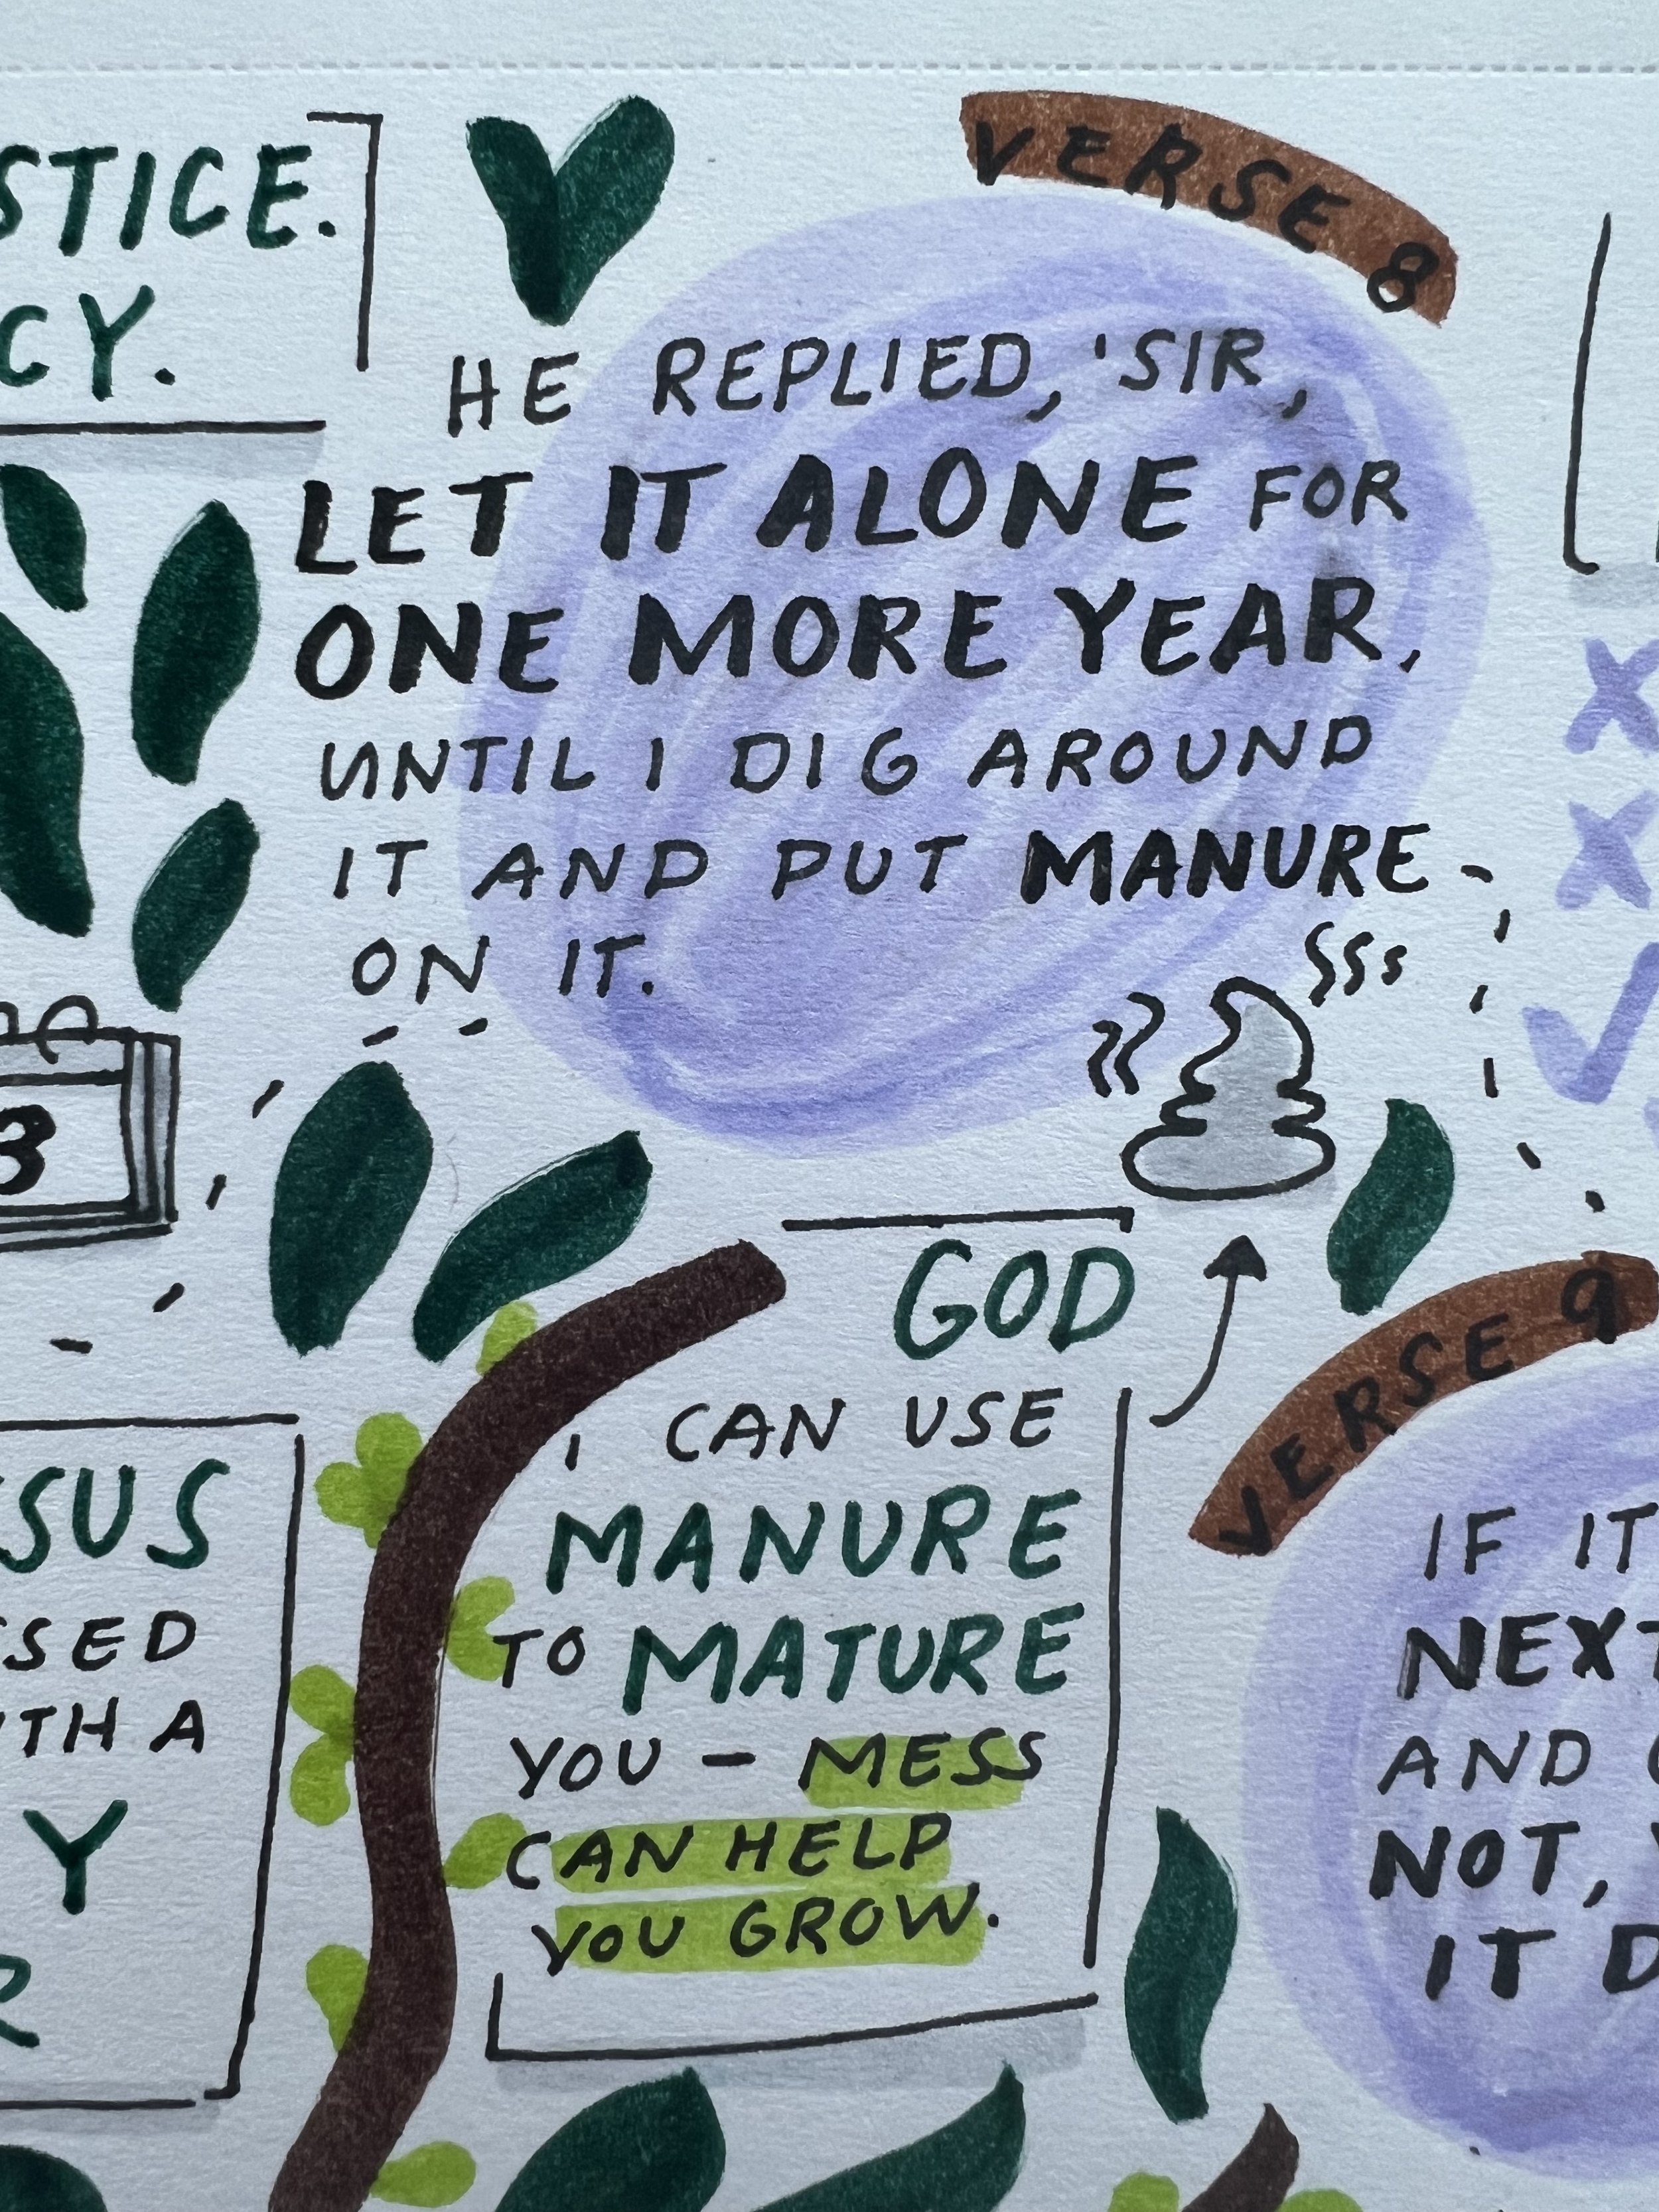 STICE.
CY.
VERSE 8
HE REPLIED, 'SIR,
LET IT ALONE FOR
ONE MORE YEAR,
UNTIL I DIG AROUND
IT AND PUT MANURE
ON IT.
3
GOD
CAN USE
MANURE
TO MATURE
YOU – MESS
CAN HELP
YOU GROW.
SUS
SSED
ITH A
Y
R
VERSE 9
IF IT
NEXT
AND
NOT,
IT D